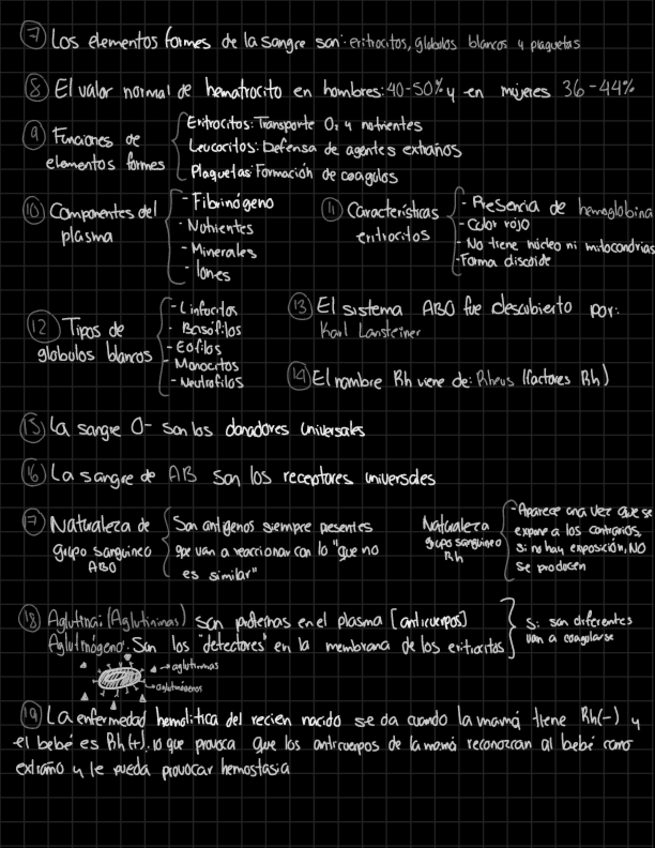 7 Los elementos formes de la sangre son: eritrocitos, globulos blancos y plaquetas
8 El valor normal de hematrocito en hombres: 40-50% y en mujeres 36-44%
9 Funciones de elementos formes
Eritrocitos: Transporte O₂ y nutrientes
Leucocitos: Defensa de agentes extraños
Plaquetas: Formación de coagulos
10 Componentes del plasma
- Fibrinógeno
- Nutrientes
- Minerales
- Iones
11 Características eritrocitos
- Presencia de hemoglobina
- Color rojo
- No tiene núcleo ni mitocondrias
- Forma discoide
12 Tipos de globulos blancos
- Linfocitos
- Basófilos
- Eofilos
- Monocitos
- Neutrofilos
13 El sistema ABO fue descubierto por:
Karl Lansteiner
14 El nombre Rh viene de: Rheus (factores Rh)
15 La sangre O- son los donadores universales
16 La sangre de AB son los receptores universales
17 Naturaleza de grupo sanguineo ABO
Son antigenos siempre presentes
que van a reaccionar con lo "que no
es similar"
Naturaleza grupo sanguineo Rh
- Aparece una vez que se
expone a los contrarios,
si no hay exposición, NO
se producen
18 Aglutina: (Aglutininas) son proteinas en el plasma [anticuerpos]
Aglutinógeno: Son los "detectores" en la membrana de los eritrocitos
Si son diferentes
van a coagularse
→ aglutininas
→ aglutinógenos
19 La enfermedad hemolitica del recien nacido se da cuando la mamá tiene Rh(-) y
el bebé es Rh(+), lo que provoca que los anticuerpos de la mamá reconozcan al bebé como
extraño y le pueda provocar hemostasia